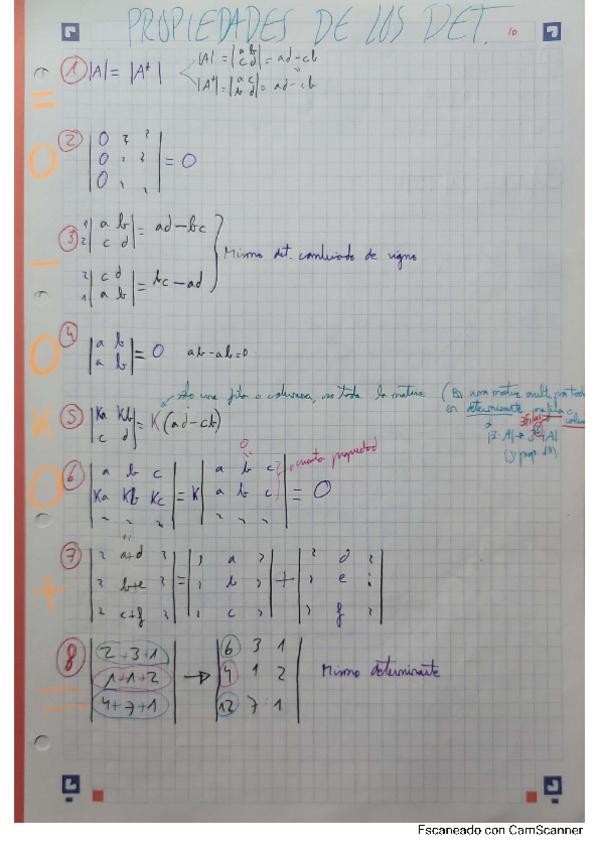 PROPIEDADES DE LOS DET.
10
① |A| = |Aᵗ|
|A| = |a b
c d| = ad-cb
|Aᵗ| = |a c
b d| = ad-cb
=
② |0 ? ?
0 ? ?
0 ? ?| = 0
0
③ 1 |a b
2 c d| = ad-bc
2 |c d
1 a b| = bc-ad
Mismo det. cambiado de signo
-
④ |a b
a b| = 0 ab-ab=0
0
A una fila o columna, no toda la matriz
(En una matriz mult. por toda
en determinante fila o
columna
⑤ |Ka Kb
c d| = K(ad-cb)
K
|3·A|
⑥ |a b c
Ka Kb Kc
? ? ?| = K |a b c
a b c
? ? ?| = 0
0
cuarta propiedad
0
⑦ |? a+d ?
? b+e ?
? c+f ?| = |? a ?
? b ?
? c ?| + |? d ?
? e ?
? f ?|
+
⑧ |2+3+1
1+1+2
4+7+1| → |6 3 1
4 1 2
12 7 1|
Mismo determinante
=
Escaneado con CamScanner